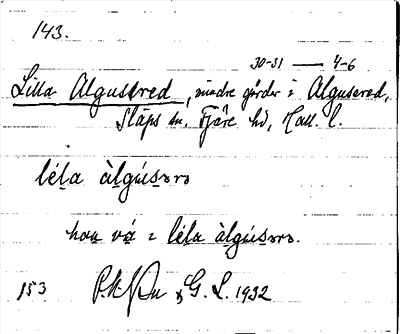 143.
30-31 — 4-6
Lilla Algustred, mindre gårdar i Algusered,
Släps sn, Fjäre hd, Hall. l.
léḷa àlgúsərə
hoṇ vạ i léḷa àlgúsərə.
153 G. L. 1932